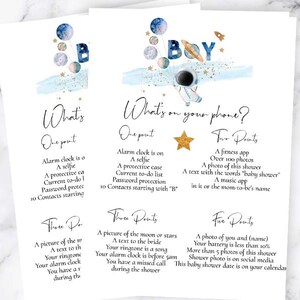 B
What's
One point
Alarm clock is o
A selfie
A protective ca
Current to-do l
Password prote
10 Contacts starti
Three Points
A picture of the m
A text to th
Your ringtone
Your alarm clock i
You have a
during
BOY
What's on your phone?
One point
Alarm clock is on
A selfie
A protective case
Current to-do list
Password protection
10 Contacts starting with "B"
Two Points
A fitness app
Over 100 photos
A photo of this shower
A text with the words "baby shower"
A music app
in it or the mom-to-be's name
Three Points
A picture of the moon or stars
A text to the bride
Your ringtone is a song
Your alarm clock is before 5am
You have a missed call
during the shower
Five Points
A photo of you and (name)
Your battery is less than 20%
More than 5 photos of this shower
Shower photo is on social media
This baby shower date is on your calendar